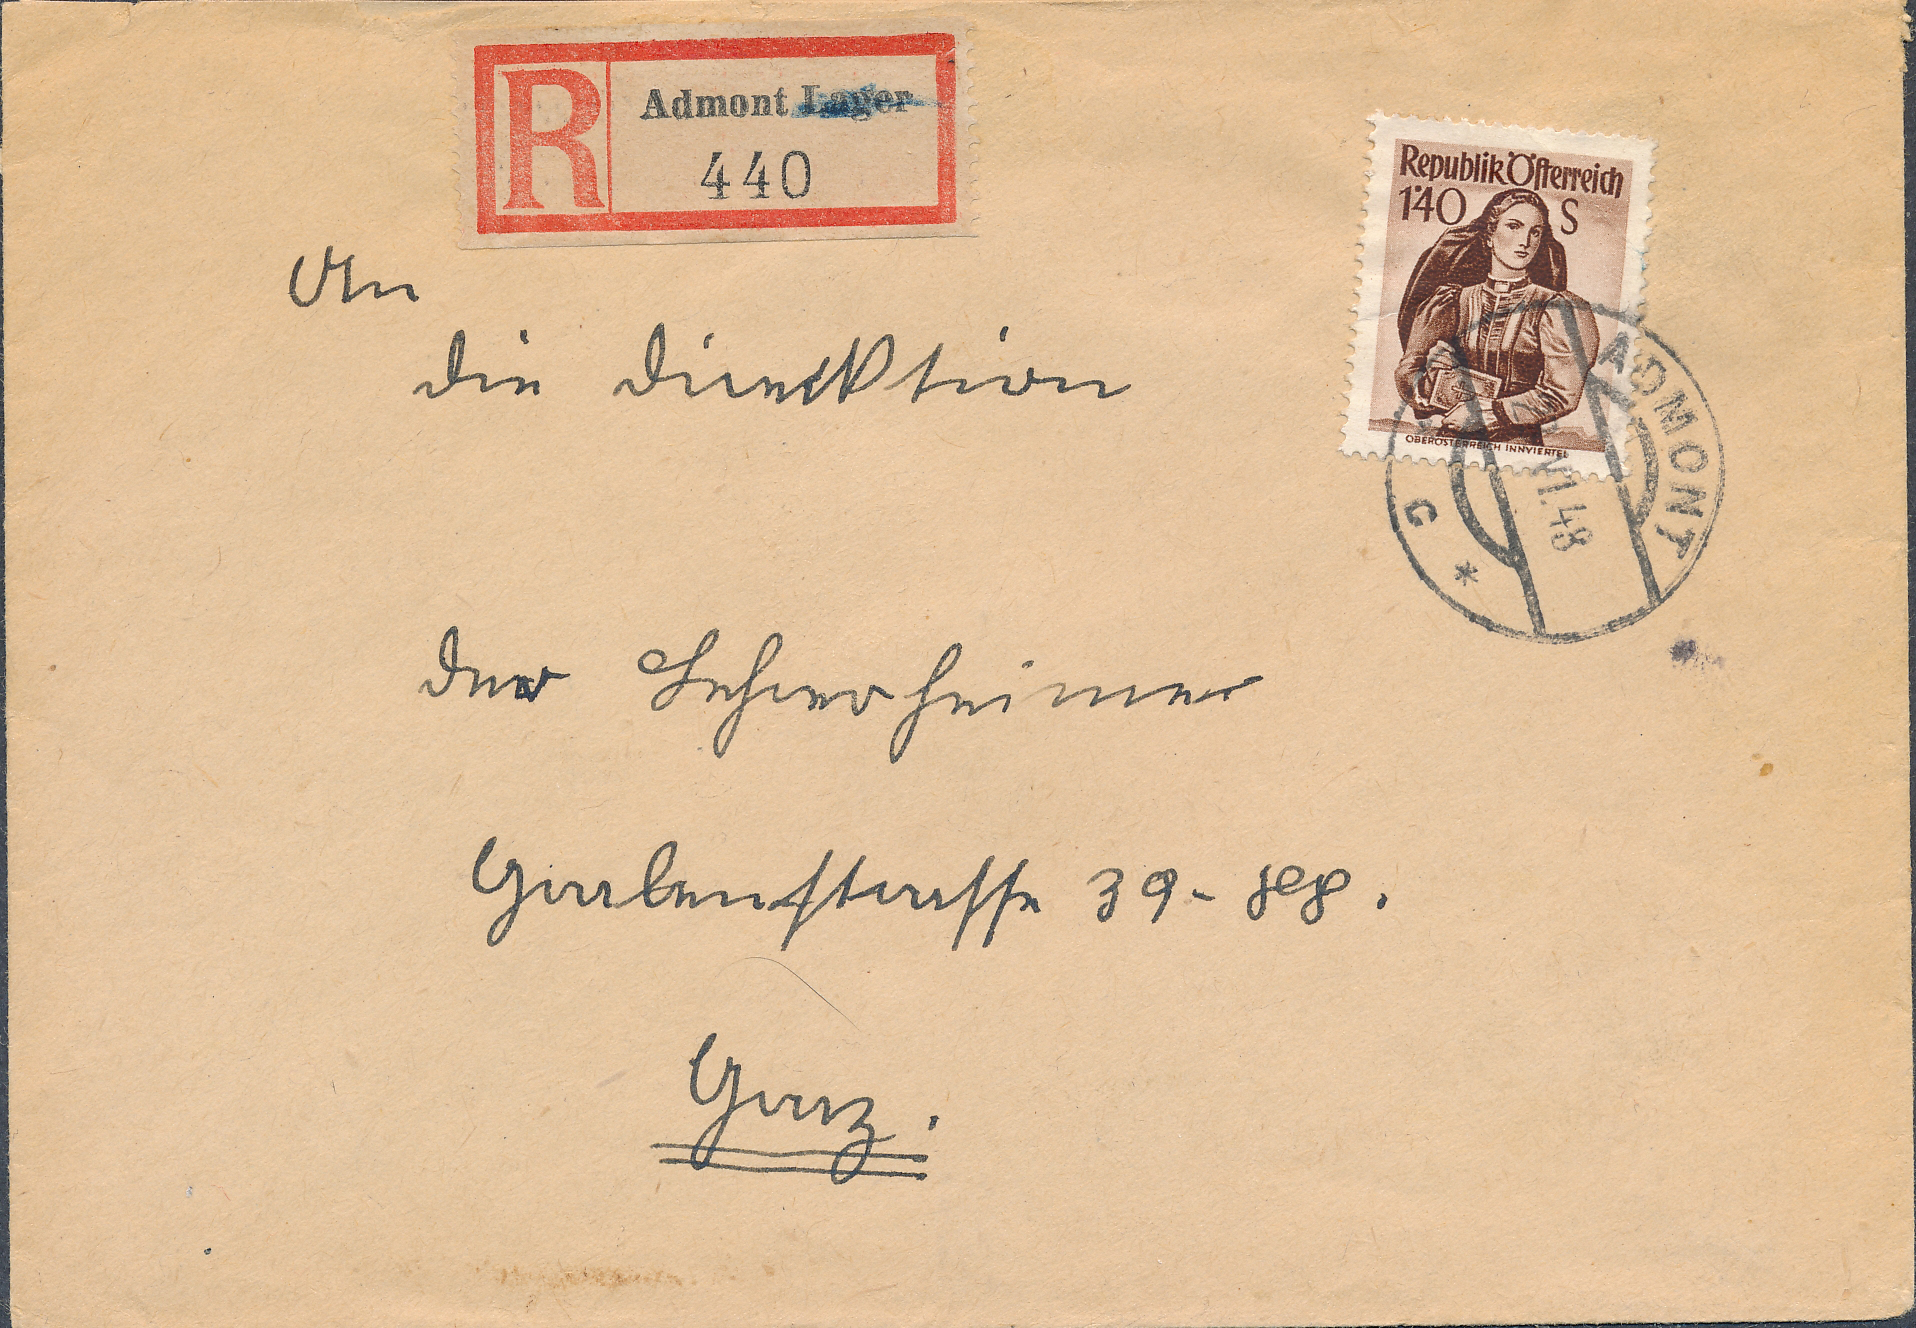 R Admont Lager
440
Republik Österreich
1·40 S
OBERÖSTERREICH INNVIERTEL
ADMONT
VI.48
G *
An
die Direktion
der
Grabenstrasse 39-
Graz.